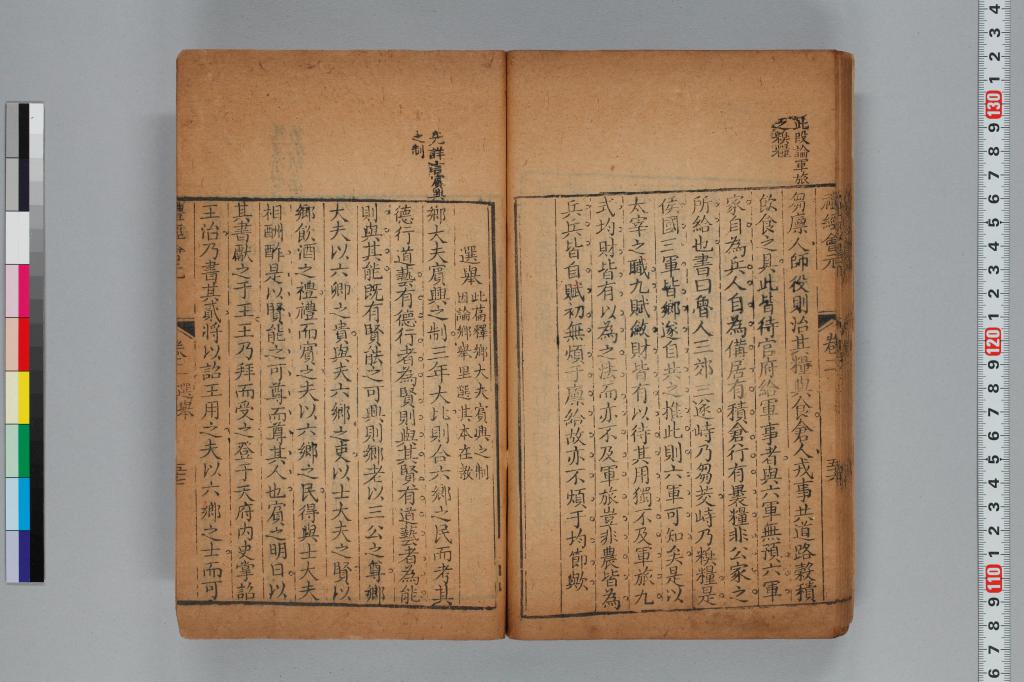 此段論軍旅
之糗糧
芻廩人師役則治其糧與食倉人戎事共道路穀積
飲食之具此皆待官府給軍事者與六軍無預六軍
家自為兵人自為備居有積倉行有裹糧非公家之
所給也書曰魯人三郊三遂峙乃芻茭峙乃糗糧是
侯國三軍皆鄉遂自共之推此則六軍可知矣是以
太宰之職九賦斂財皆有以待其用獨不及軍旅九
式均財皆有以為之法而亦不及軍旅豈非農皆為
兵兵皆自賦初無煩于廩給故亦不煩于均節歟
先詳言賓興
之制
選舉
此篇釋鄉大夫賓興之制
因論鄉舉里選其本在教
鄉大夫賓興之制三年大比則合六鄉之民而考其
德行道藝有德行者為賢則與其賢有道藝者為能
則與其能既有賢能之可興則鄉老以三公之尊鄉
大夫以六卿之貴與夫六鄉之吏以士大夫之賢以
鄉飲酒之禮禮而賓之夫以六鄉之民得與士大夫
相酬酢是以賢能之可尊而尊其人也賓之明日以
其書獻之于王王乃拜而受之登于天府內史掌詔
王治乃書其貳將以詔王用之夫以六鄉之士而可
選舉